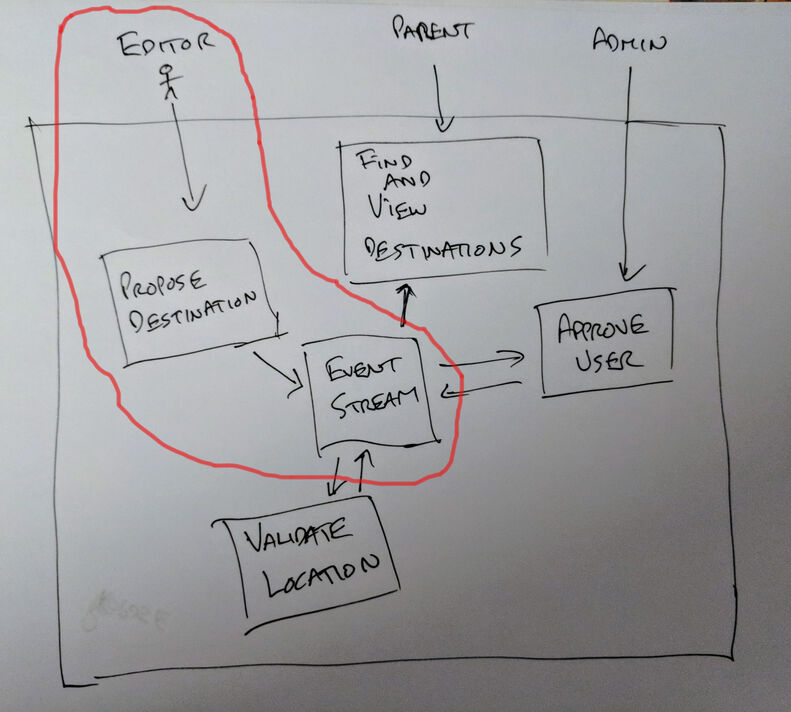 EDITOR
PARENT
ADMIN
FIND
AND
VIEW
DESTINATIONS
PROPOSE
DESTINATION
EVENT
STREAM
APPROVE
USER
VALIDATE
LOCATION